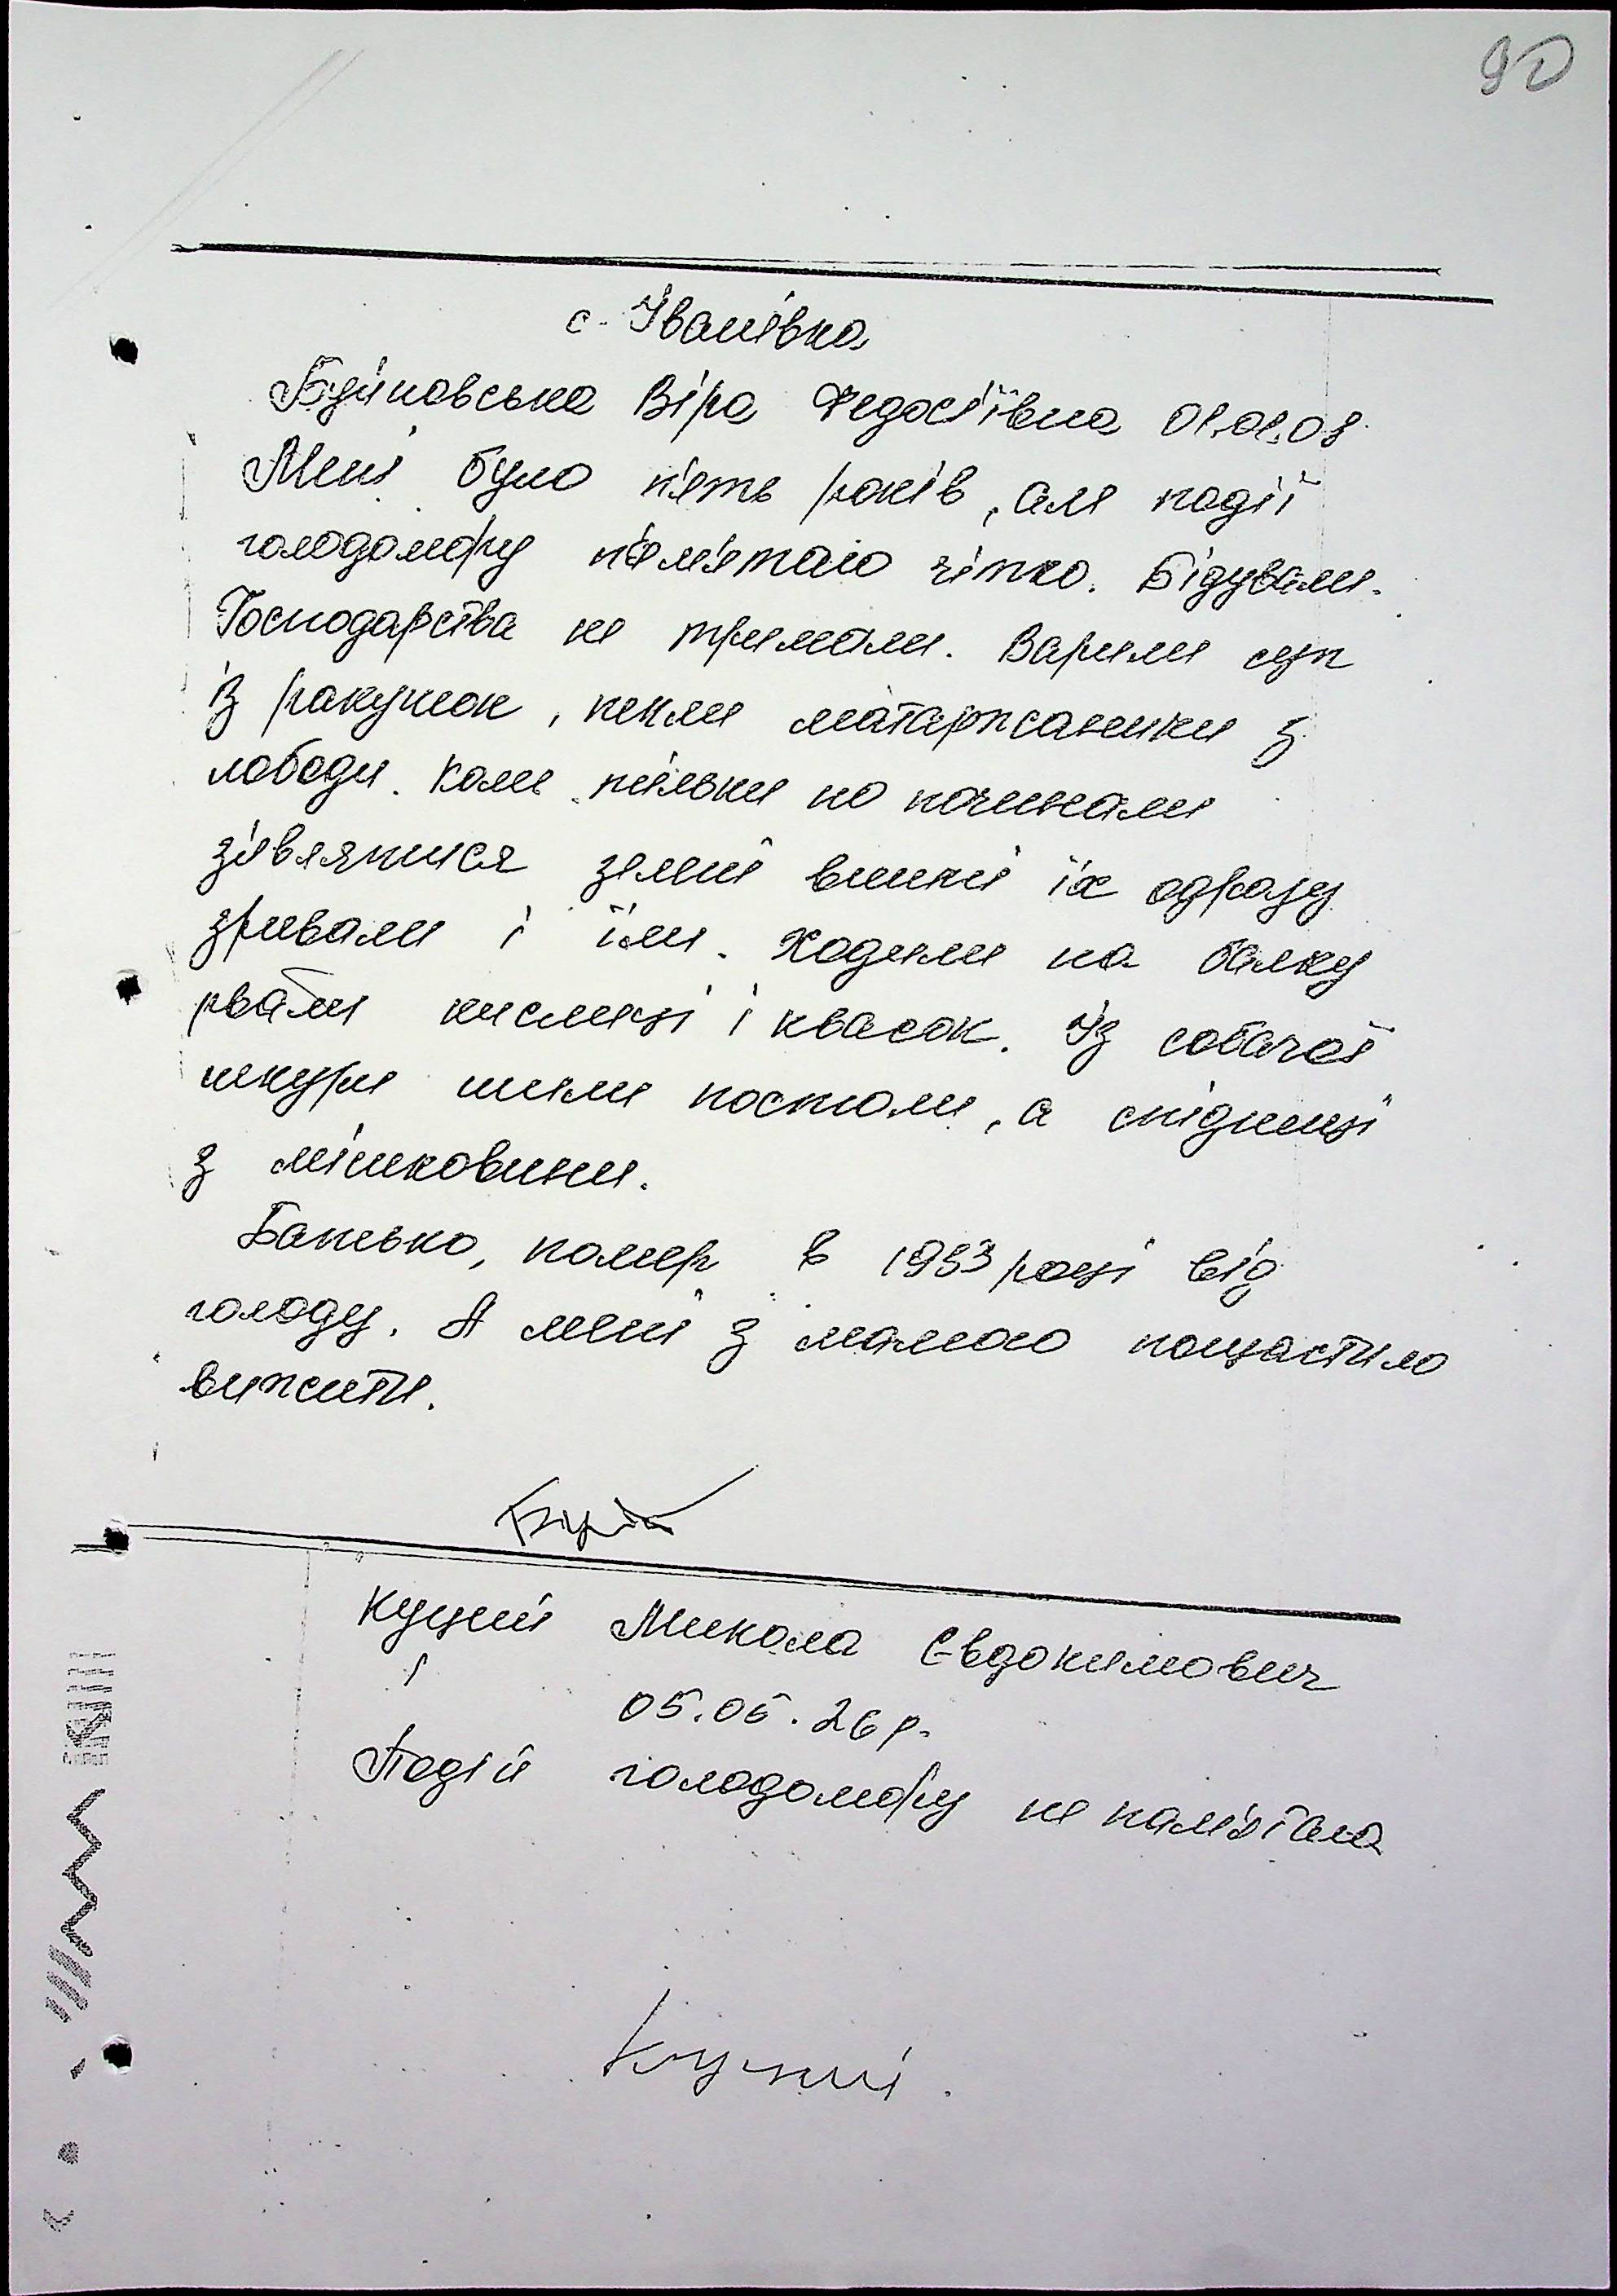 90
с. Іванівка
Буйновська Віра Федосіївна 01.01.08
Мені було п'ять років, але події
голодомору пам'ятаю чітко. Бідували.
Господарства не тримали. Варили суп
із ракушок, пекли матаржаники з
лободи. Коли тільки но починали
з'являтися зелені вишні їх одразу
зривали і їли. Ходили на балку
рвали кислиці і квасок. Із собачої
шкури шили постоли, а спідниці
з мішковини.
Батько, помер в 1933 році від
голоду. А мені з мамою пощастило
вижити.
Куций Микола Євдокимович
05.05.26 р.
Подій голодомору не пам'ятає
Куций.